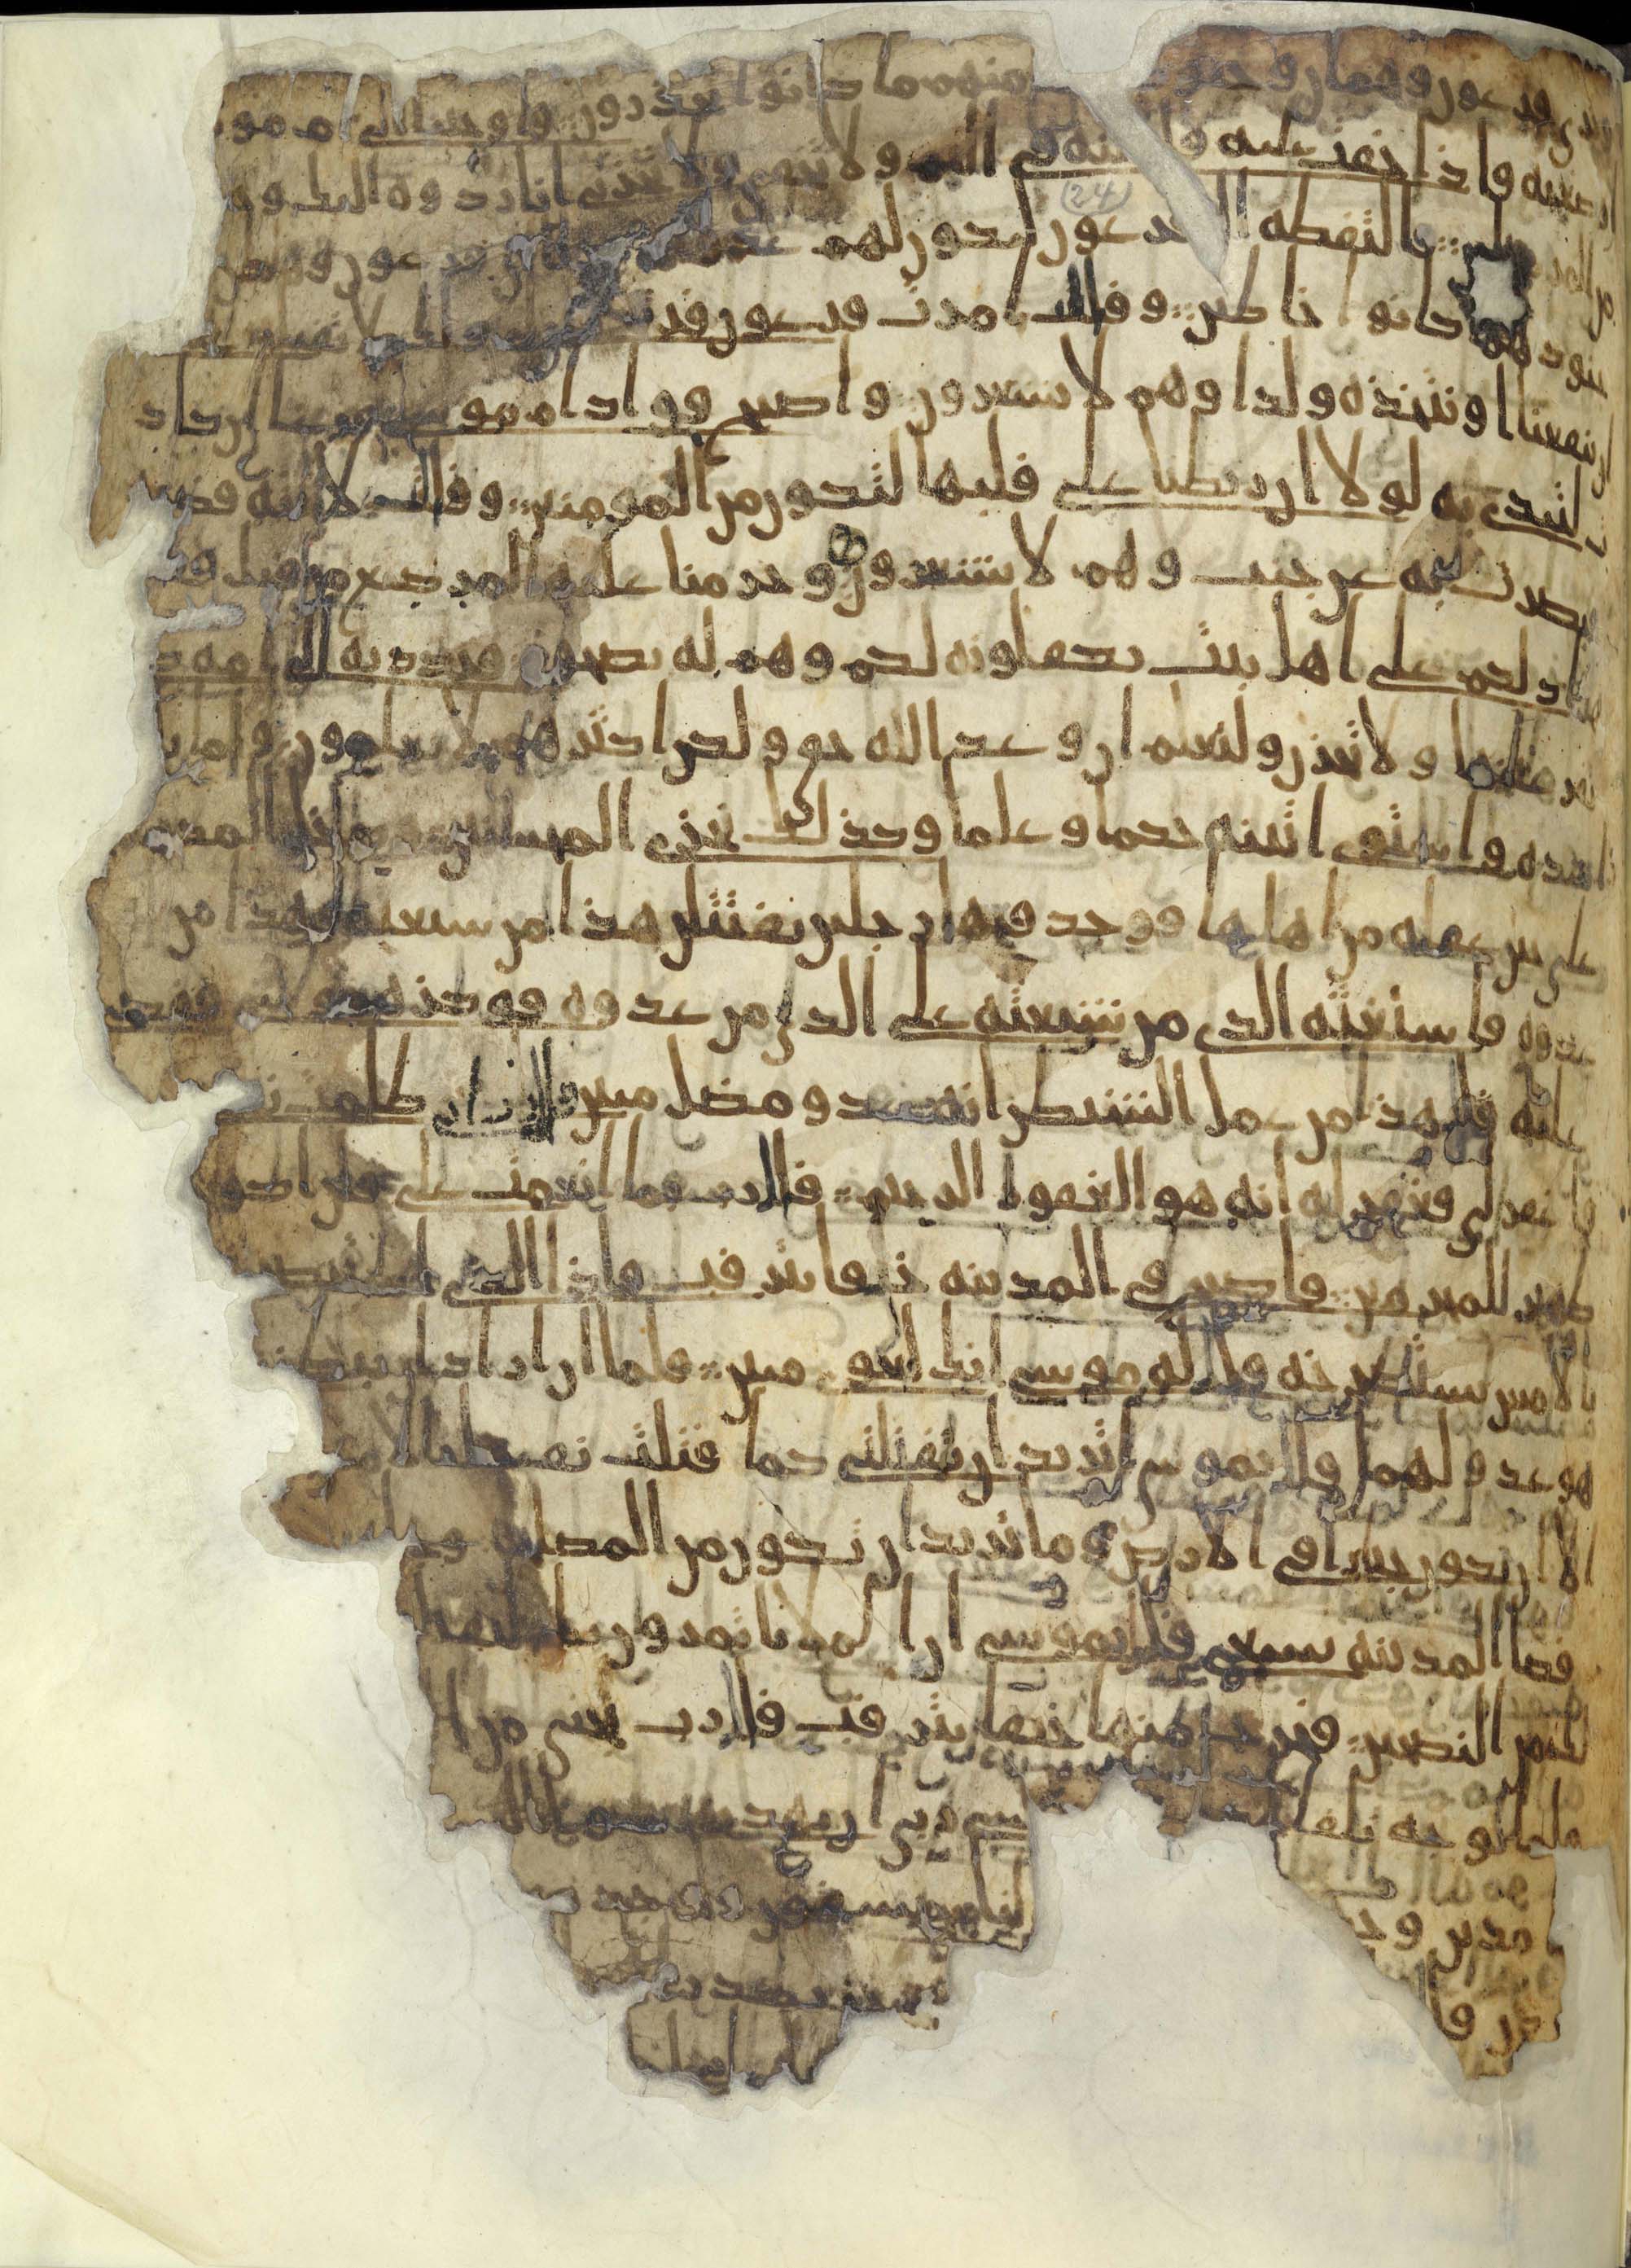 ونرى فرعون وهامان وجنود منهم ما كانوا يحذرون واوحينا الى ام موسى
ارضعيه فاذا خفت عليه فالقيه في اليم ولا تخفي ولا تحزني انا رادوه اليك و
من المر سلين فالتقطه ال فرعون ليكون لهم عدوا فرعون وهمن
جنودهما كانوا خاطين وقالت امرت فرعون قرت لا تقتلوه عسى
ان ينفعنا او نتخذه ولدا وهم لا يشعرون واصبح فواد ام موسى فرغا ان كاد
لتبدي به لولا ان ربطنا على قلبها لتكون من المومنين وقالت لاخته قصيه
فبصرت به عن جنب وهم لا يشعرون وحرمنا عليه المرضع من قبل فق
ادلكم على اهل بيت يكفلونه لكم وهم له نصحون فرددنه الى امه كي
تقر عينها ولا تحزن ولتعلم ان وعد الله حق ولكن اكثرهم لا يعلمون ولما بلغ
اشده واستوى اتينه حكما وعلما وكذلك نجزي المحسنين ودخل المدينه
على حين غفله من اهلها فوجد فيها رجلين يقتتلن هذا من شيعته وهذا من
عدوه فاستغثه الذي من شيعته على الذي من عدوه فوكزه موسى فقضى
عليه قل هذا من عمل الشيطن انه عدو مضل مبين قال رب اني ظلمت نفسي
فاغفر لي فغفر له انه هو الغفور الرحيم قال رب بما انعمت علي فلن اكون
ظهيرا للمجرمين فاصبح في المدينه خيفا يترقب فاذا الذي استنصر
بالامس يستصرخه قل له موسى انك لغوي مبين فلما ان اراد ان يبطش
هو عدو لهما قل يموسى اتريد ان تقتلني كما قتلت نفسا بالامس
الا ان تكون جبرا في الارض وما تريد ان تكون من المصلحين وجا
قصا المدينه يسعى قل يموسى ان الملا ياتمرون بك ليقتلو
لك من النصحين فخرج منها خيفا يترقب قال رب نجني من ا
ولما توجه تلقا سى ربي ان يهديني سوا ال
مدين وجد الناس يسقون ووجد
ين قا يصدر